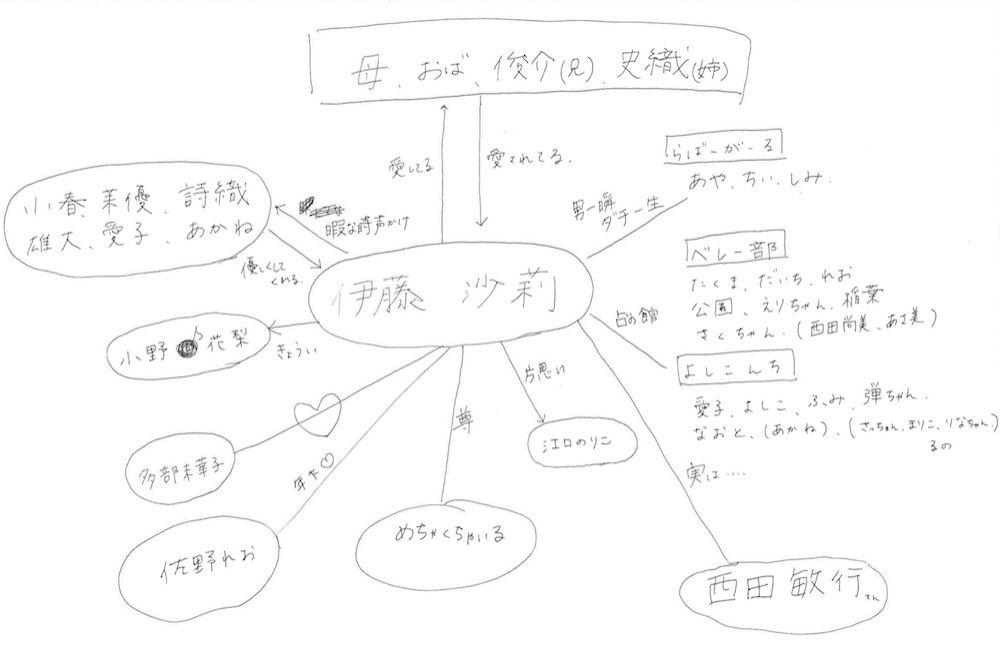 母、おば、俊介(兄)、史織(姉)
愛してる
愛されてる.
らばーがーる
あや、ちい、しみ.
男一瞬
ダチ一生
小春、茉優、詩織
雄大、愛子、あかね
暇な時声かけ
優しくして
くれる.
伊藤 沙莉
ベレー部
たくま、だいち、れお
公園、えりちゃん、稲葉
さくちゃん.(西田尚美、あさ美)
占の館
小野 花梨
きょうい
よしこんち
愛子、よしこ、ふみ、弾ちゃん.
なおと、(あかね)、(さっちゃん、まりこ、りなちゃん.)
るの
片思い
江口のりこ
尊
多部未華子
年末♡
実は....
めちゃくちゃいる
佐野れお
西田敏行さん